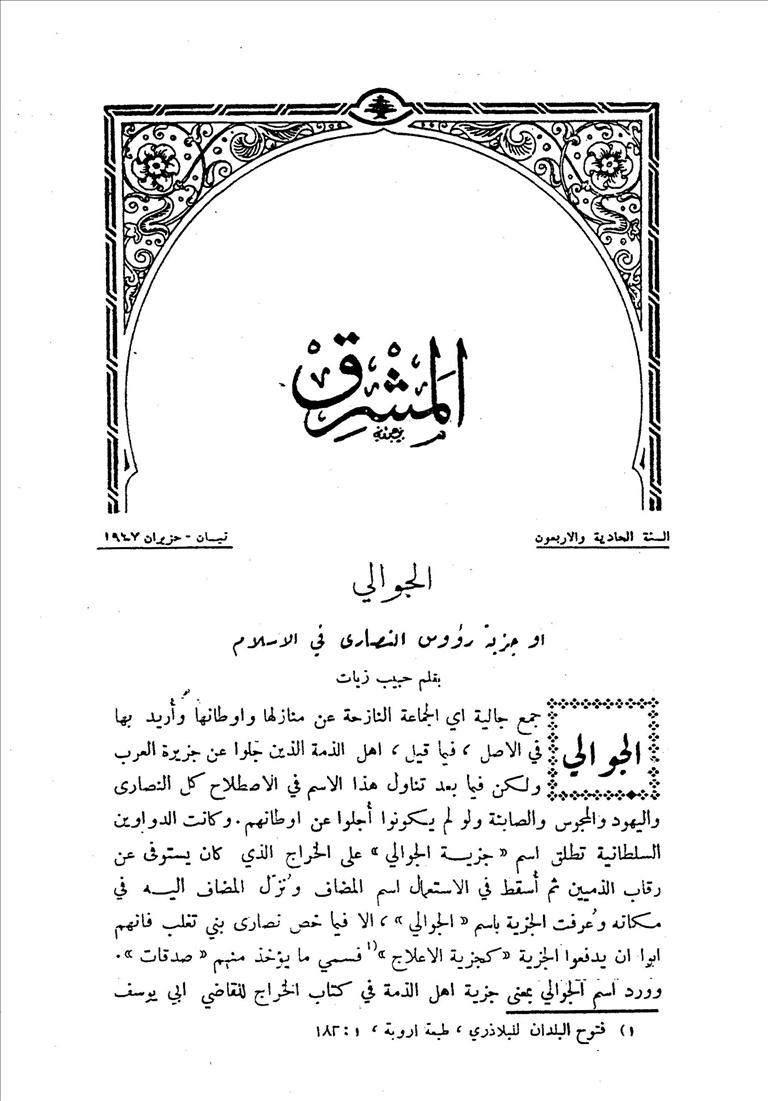 المشرق
السنة الحادية والاربعون
نيسان - حزيران ١٩٤٧
الجوالي
او جزية رؤوس النصارى في الاسلام
بقلم حبيب زيات
الجوالي جمع جالية اي الجماعة النازحة عن منازلها واوطانها وأريد بها
في الاصل ، فيما قيل ، اهل الذمة الذين جَلوا عن جزيرة العرب
ولكن فيما بعد تناول هذا الاسم في الاصطلاح كل النصارى
واليهود والمجوس والصابئة ولو لم يكونوا أُجلوا عن اوطانهم . وكانت الدواوين
السلطانية تطلق اسم « جزيـة الجوالي » على الخراج الذي كان يستوفى عن
رقاب الذميين ثم أُسقط في الاستعمال اسم المضاف ونُزّل المضاف اليـه في
مكانه وعُرفت الجزية باسم « الجوالي » ، الا فيما خص نصارى بني تغلب فانهم
ابوا ان يدفعوا الجزية « كجزية الاعلاج »١) فسمي ما يؤخذ منهم « صدقات » .
وورد اسم الجوالي بمعنى جزية اهل الذمة في كتاب الخراج للقاضي ابي يوسف
١) فتوح البلدان للبلاذري ، طبعة اروبة ، ١ : ١٨٢